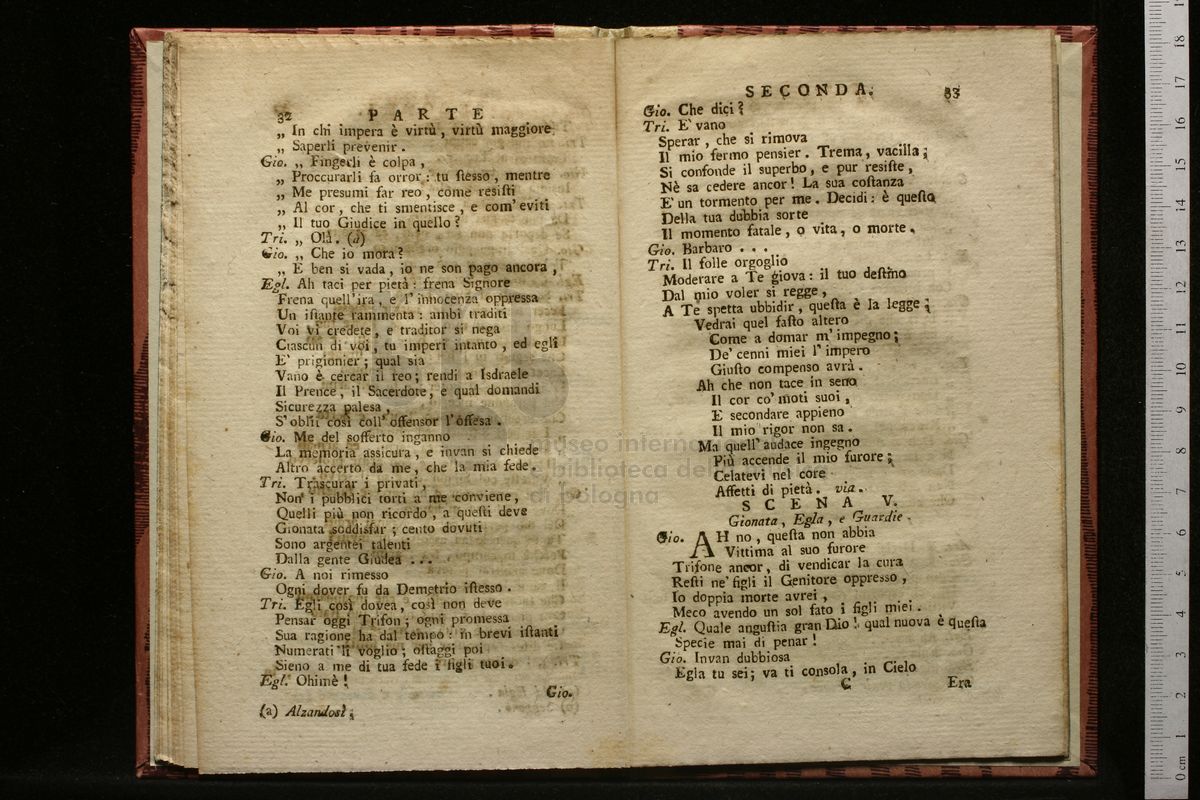 32 PARTE
„ In chi impera è virtù, virtù maggiore
„ Saperli prevenir.
Gio. „ Fingerli è colpa,
„ Proccurarli fa orror: tu ſteſſo, mentre
„ Me preſumi far reo, come reſiſti
„ Al cor, che ti ſmentiſce, e com' eviti
„ Il tuo Giudice in quello?
Tri. „ Olà. (a)
Gio. „ Che io mora?
„ E ben si vada, io ne son pago ancora,
Egl. Ah taci per pietà: frena Signore
Frena quell'ira, e l' innocenza oppreſſa
Un iſtante rammenta: ambi traditi
Voi vi credete, e traditor si nega
Ciaſcun di voi, tu imperi intanto, ed egli
E' prigionier; qual sia
Vano è cercar il reo; rendi a Isdraele
Il Prence, il Sacerdote, e qual domandi
Sicurezza palesa,
S'oblii così coll' offenſor l'offeſa.
Gio. Me del sofferto inganno
La memoria aſſicura, e invan si chiede
Altro accerto da me, che la mia fede.
Tri. Traſcurar i privati,
Non i pubblici torti a me conviene,
Quelli più non ricordo, a queſti deve
Gionata soddisfar; cento dovuti
Sono argentei talenti
Dalla gente Giudea ...
Gio. A noi rimeſſo
Ogni dover fu da Demetrio iſteſſo.
Tri. Egli così dovea, così non deve
Penſar oggi Trifon; ogni promeſſa
Sua ragione ha dal tempo: in brevi iſtanti
Numerati li voglio; oſtaggi poi
Sieno a me di tua fede i figli tuoi.
Egl. Ohimè!
Gio.
(a) Alzandosi;
SECONDA. 33
Gio. Che dici?
Tri. E' vano
Sperar, che si rimova
Il mio fermo pensier. Trema, vacilla;
Si confonde il superbo, e pur reſiſte,
Nè sa cedere ancor! La sua coſtanza
E' un tormento per me. Decidi: è queſto
Della tua dubbia sorte
Il momento fatale, o vita, o morte.
Gio. Barbaro ...
Tri. Il folle orgoglio
Moderare a Te giova: il tuo deſtino
Dal mio voler si regge,
A Te spetta ubbidir, queſta è la legge;
Vedrai quel faſto altero
Come a domar m' impegno;
De' cenni miei l' impero
Giuſto compenso avrà.
Ah che non tace in seno
Il cor co' moti suoi,
E secondare appieno
Il mio rigor non sa.
Ma quell' audace ingegno
Più accende il mio furore;
Celatevi nel core
Affetti di pietà. via.
SCENA V.
Gionata, Egla, e Guardie.
Gio. AH no, queſta non abbia
Vittima al suo furore
Trifone ancor, di vendicar la cura
Reſti ne' figli il Genitore oppreſſo,
Io doppia morte avrei,
Meco avendo un sol fato i figli miei.
Egl. Quale anguſtia gran Dio! qual nuova è queſta
Specie mai di penar!
Gio. Invan dubbiosa
Egla tu sei; va ti consola, in Cielo
C Era